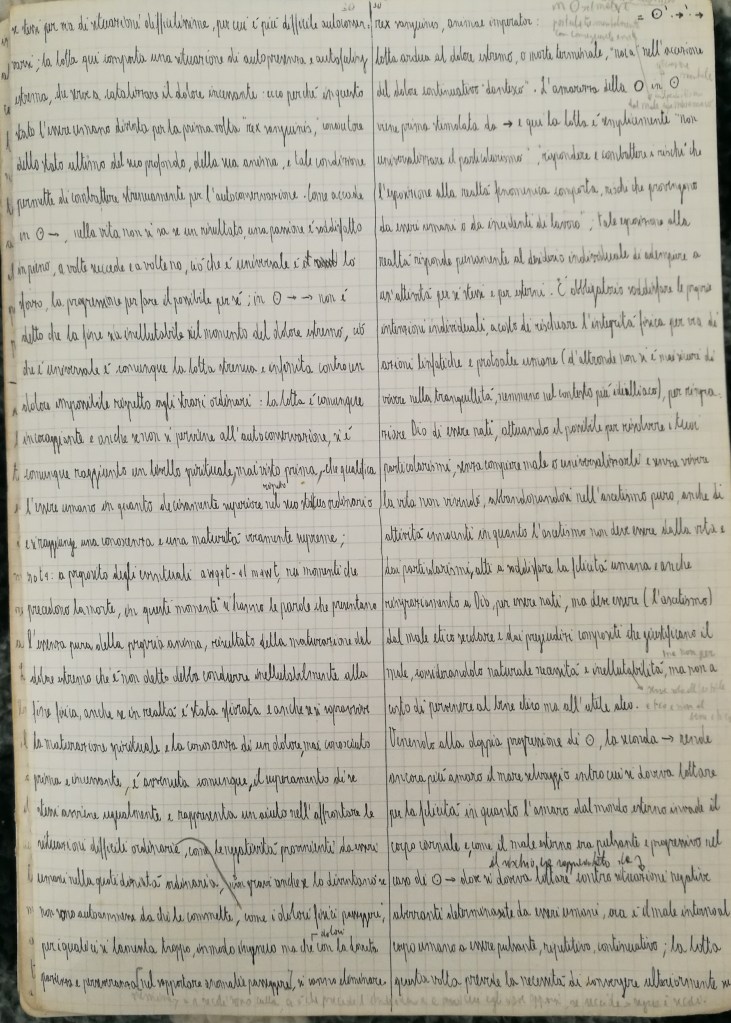 se stessi per via di situazioni difficilissime, per cui è più difficile autoconser-
varsi; la lotta qui comporta una situazione di autopresenza e autofeeling
estrema, che serve a catalizzare il dolore incessante: ecco perché in questo
stato l'essere umano diventa per la prima volta "rex sanguinis,
dello stato ultimo del suo profondo, della sua anima, e tale condizione
permette di combattere strenuamente per l'autoconservazione. Come accade
in ⊙→, nella vita non si sa se un risultato, una passione è soddisfatto
in pieno, a volte succede e a volte no, ciò che è universale è lo
sforzo, la progressione per fare il possibile per sé; in ⊙→→ non è
detto che la fine sia ineluttabile nel momento del dolore estremo, ciò
che è universale è comunque la lotta strenua e infinita contro un
dolore impossibile rispetto agli stati ordinari: la lotta è comunque
incoraggiante e anche se non si perviene all'autoconservazione, si è
comunque raggiunto un livello spirituale, mai visto prima, che qualifica
l'essere umano in quanto decisamente superiore nel suo status ordinario
e si raggiunge una conoscenza e una maturità veramente supreme;
nota: a proposito degli eventuali nei momenti che
precedono la morte, in questi momenti si hanno le parole che presentano
l'essenza pura della propria anima, risultato della maturazione del
dolore estremo che è non detto debba condurre ineluttabilmente alla
fine fisica, anche se in realtà è stata sfiorata e anche se si sopravvive
la maturazione spirituale e la conoscenza di un dolore, mai conosciuto
prima e incessante, è avvenuta comunque, il superamento di se
stessi avviene ugualmente e rappresenta un aiuto nell'affrontare le
situazioni difficili ordinarie, come le negatività provenienti da esseri
umani nella quotidianità ordinaria, gravi anche se lo diventano se
non sono autoammesse da chi le commette, come i dolori fisici passeggeri,
per i quali ci si lamenta troppo, in modo ingenuo ma che con la dovuta
pazienza e perseveranza [nel sopportare anomalie passeggere], si vanno eliminare.
rex sanguinis, animae imperator:
lotta ardua al dolore estremo, o morte terminale, nell'accezione
del dolore continuativo "dantesco". L'amarezza della O in ⊙
viene prima stimolata da → e qui la lotta è semplicemente "non
universalizzare il particolarismo", "rispondere e combattere i rischi che
l'esposizione alla realtà fenomenica comporta, rischi che provengono
da esseri umani o da incidenti di lavoro"; tale esposizione alla
realtà risponde pienamente al desiderio individuale di adempiere a
un'attività per se stessi e per esterni. È obbligatorio soddisfare le proprie
intenzioni individuali, a costo di rischiare l'integrità fisica per via di
azioni linfatiche e umane (d'altronde non si è mai sicuri di
vivere nella tranquillità, nemmeno nel contesto più idealliaco), per ringra-
ziare Dio di essere nati, attuando il possibile per risolvere i tuoi
particolarismi, senza compiere male o universalizzarli e senza vivere
la vita non vivendo, abbandonandosi nell'ascetismo puro, anche di
attività innocenti in quanto l'ascetismo non deve essere dalla vita e
dai particolarismi, atti a soddisfare la felicità umana e anche
ringraziamento a Dio, per essere nati, ma deve essere (l'ascetismo)
dal male etico secolare e dai pregiudizi compositi che giustificano il
male, considerandolo naturale necessità e ineluttabilità, ma non a
costo di pervenire al bene etico ma all'utile
Venendo alla doppia progressione di ⊙, la seconda → rende
ancora più amaro il mare selvaggio entro cui si doveva lottare
per la felicità in quanto l'amaro dal mondo esterno invade il
corpo carnale e, come il male esterno era pulsante e progressivo nel
caso di ⊙→ dove si doveva lottare contro situazioni negative
aberranti determinate da esseri umani, ora è il male interno al
corpo umano a essere pulsante, repetitivo, continuativo; la lotta
questa volta prevede la necessità di convergere ulteriormente su